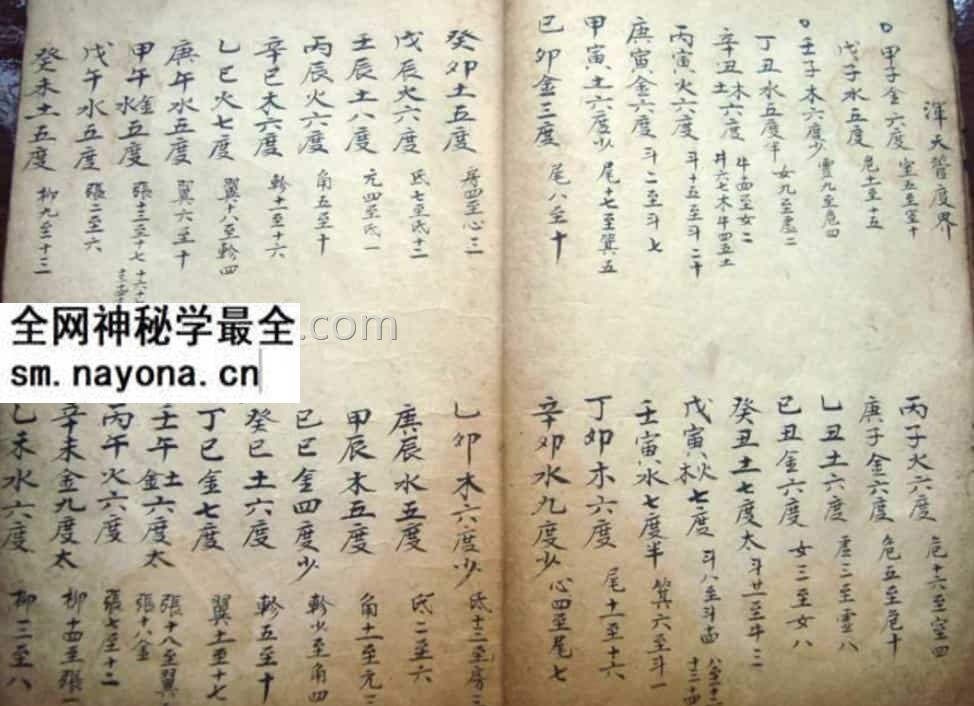 渾天管度界
甲子金六度 室五至室十
戊子水五度 危十一至十五
壬子木六度少 虛九至危四
丁丑水五度半 女九至虛二
辛丑木土六度 牛四至女二
斗六七木牛四五土
丙寅火六度 斗十五至斗二十
庚寅金六度 斗二至斗七
甲寅土六度少 尾十七至箕五
己卯金三度 尾八至十
丙子火六度 危十六至室四
庚子金六度 危五至危十
乙丑土六度 虛三至虛八
己丑金六度 女三至女八
癸丑土七度太 斗廿一至牛三
戊寅 七度 斗八至斗
壬寅水七度半 箕六至斗一
丁卯木六度 尾十一至十六
辛卯水九度少 心四至尾七
癸卯土五度 房四至心三
戊辰火六度 氐七至氐十二
壬辰土八度 亢四至氐一
丙辰火六度 角五至十
辛巳木六度 軫十一至十六
乙巳火七度 翼十八至軫四
庚午水五度 翼六至十
甲午金水五度 張十三至十七
戊午水五度 張二至六
癸未土五度 柳九至十三
乙卯木六度少 氐十二至房三
庚辰水五度 氐二至六
甲辰木五度 角十一至亢三
己巳金四度少 軫少至角四
癸巳土六度 軫五至十
丁巳金七度 翼十一至十七
壬午金土六度太 張十八至翼
張十八金
丙午火六度 張七至十二
辛未金九度太 柳十四至張一
乙未水六度 柳三至八
全网神秘学最全
sm.nayona.cn
.com